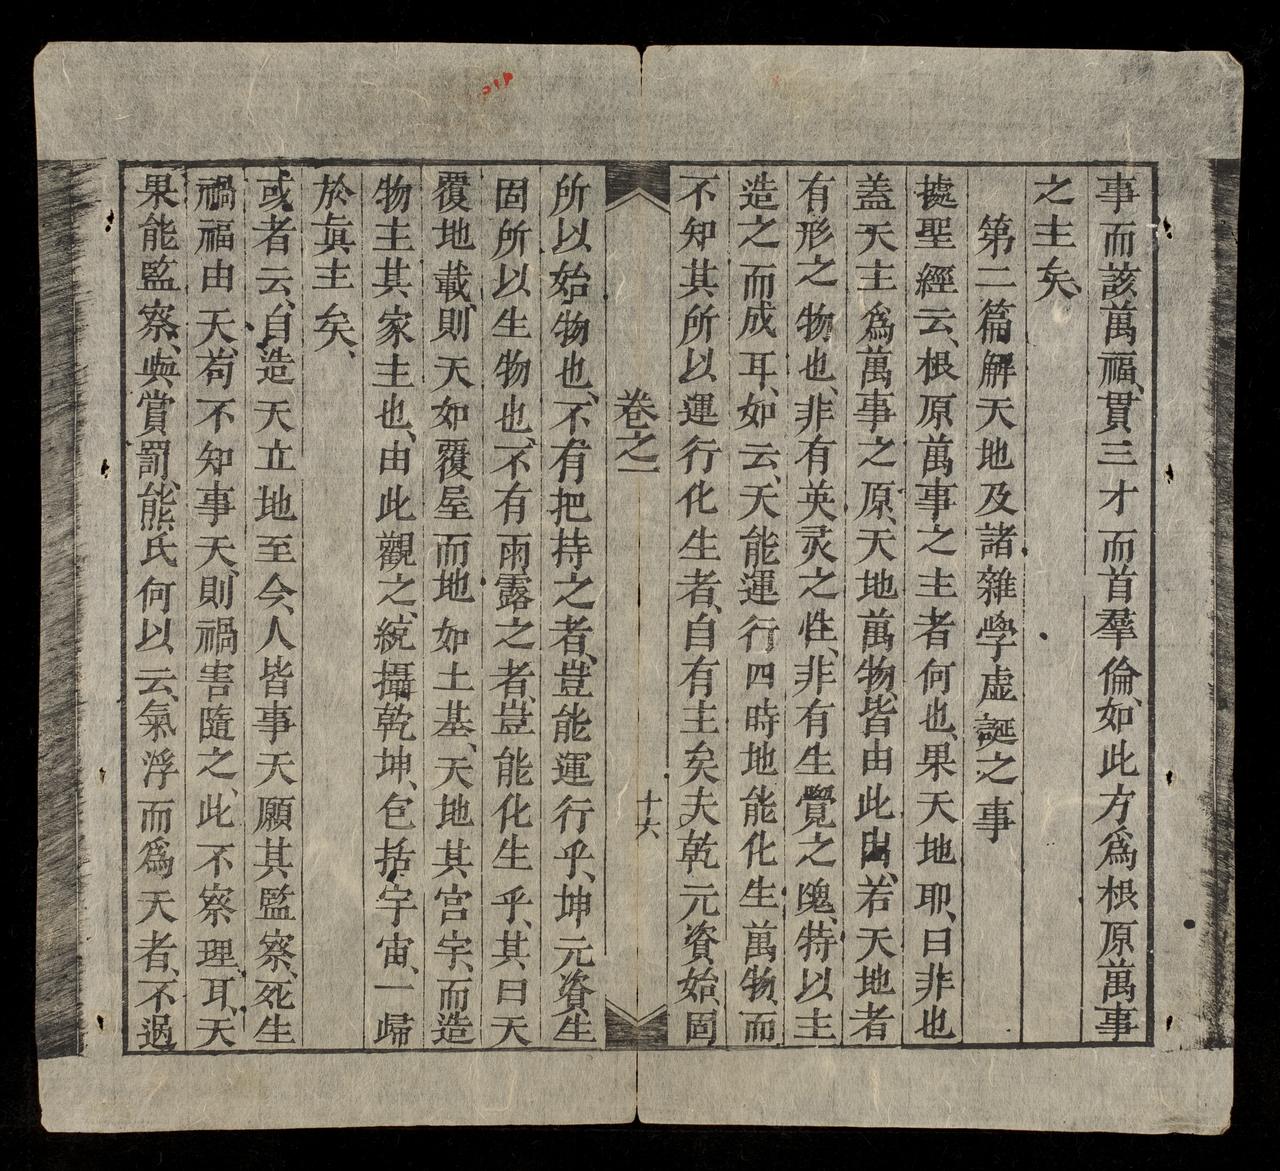 事而該萬福、貫三才而首羣倫、如此方爲根原萬事
之主矣、
第二篇解天地及諸雜學虛誕之事
據聖經云、根原萬事之主者何也、果天地耶、曰非也
蓋天主爲萬事之原、天地萬物、皆由此出、若天地者
有形之物也、非有英灵之性、非有生覺之魂、特以主
造之而成耳、如云、天能運行四時地能化生萬物、而
不知其所以運行化生者、自有主矣夫乾元資始、固
卷之一
十六
所以始物也、不有把持之者、豈能運行乎、坤元資生
固所以生物也、不有雨露之者、豈能化生乎、其曰天
覆地載、則天如覆屋而地如土基、天地其宮宇、而造
物主其家主也、由此觀之、統攝乾坤、包括宇宙、一歸
於眞主矣、
或者云、自造天立地至今、人皆事天願其監察、死生
禍福由天、苟不知事天、則禍害隨之、此不察理耳、天
果能監察、與賞罰、熊氏何以云、氣浮而爲天者、不過